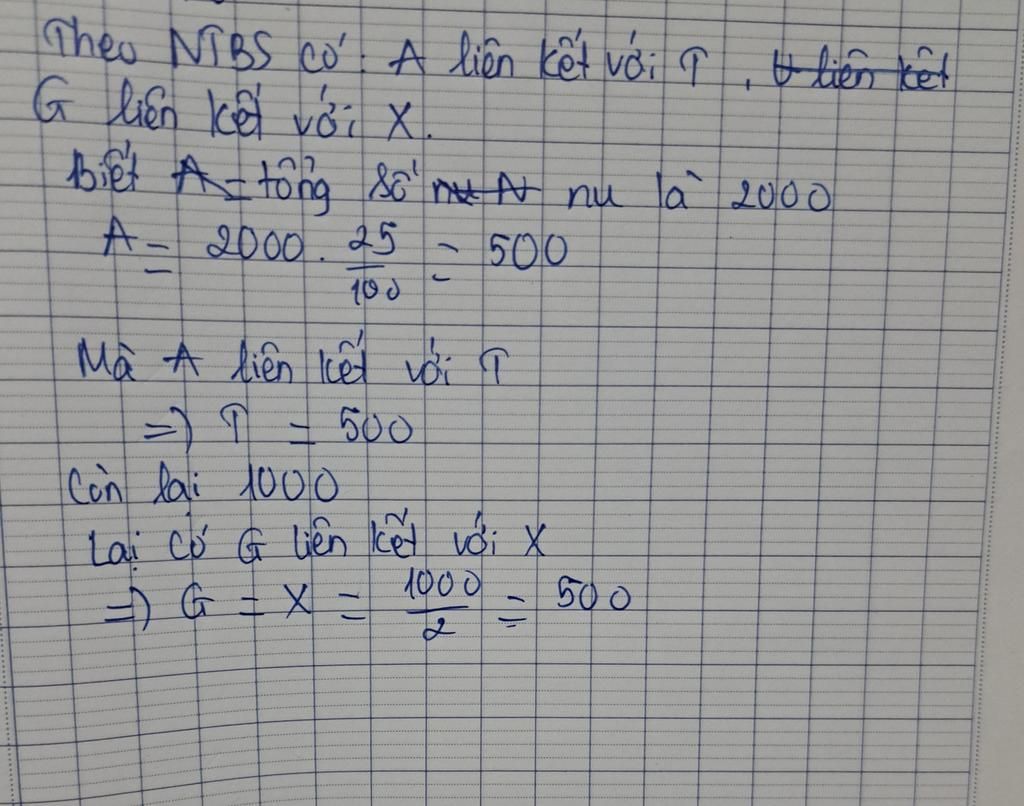 Theo NTBS có: A liên kết với T, U liên kết
G liên kết với X.
Biết A = tổng số nu N nu là 2000
A = 2000 . 25/100 = 500
Mà A liên kết với T
=) T = 500
Còn lại 1000
Lại có G liên kết với X
=) G = X = 1000/2 = 500